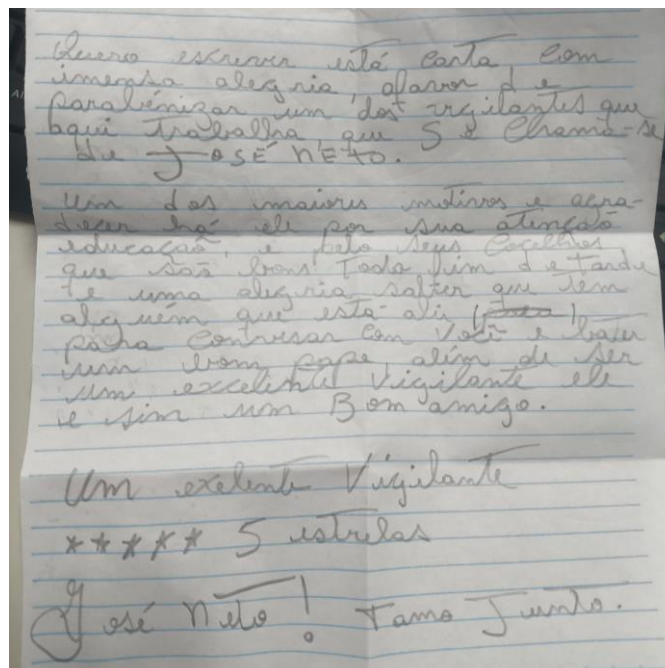 Quero escrever está carta, com
imensa alegria, afavor de
parabénizar um dos vigilantes que
aqui trabalha, que S e Chama-se
de JOSÉ NETO.
Um dos maiores motivos e agra-
decer há ele por sua atenção
educação, e pelo seus Coselhos
que são bons Toda fim de Tarde
e uma alegria salter que tem
alguém que está ali
para Conversar Com Você e bater
um bom papo, além de ser
um excelente Vigilante ele
e sim um Bom amigo.
Um exelente Vigilante
***** 5 estrelas
José Neto! Tamo Junto.